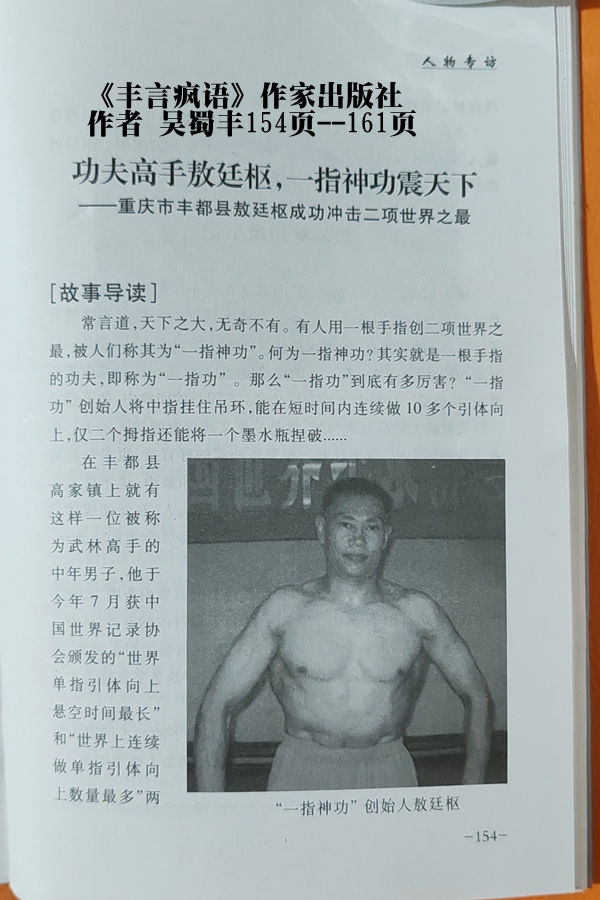 人物专访
《丰言疯语》作家出版社
作者 吴蜀丰154页--161页
功夫高手敖廷枢，一指神功震天下
——重庆市丰都县敖廷枢成功冲击二项世界之最
［故事导读］
常言道，天下之大，无奇不有。有人用一根手指创二项世界之
最，被人们称其为“一指神功”。何为一指神功？其实就是一根手指
的功夫，即称为“一指功” 。那么“一指功”到底有多厉害？“一指
功”创始人将中指挂住吊环，能在短时间内连续做10多个引体向
上，仅二个拇指还能将一个墨水瓶捏破......
在丰都县
高家镇上就有
这样一位被称
为武林高手的
中年男子，他于
今年7月获中
国世界记录协
会颁发的“世界
单指引体向上
悬空时间最长”
和“世界上连续
做单指引体向
上数量最多”两
“一指神功”创始人敖廷枢
-154-